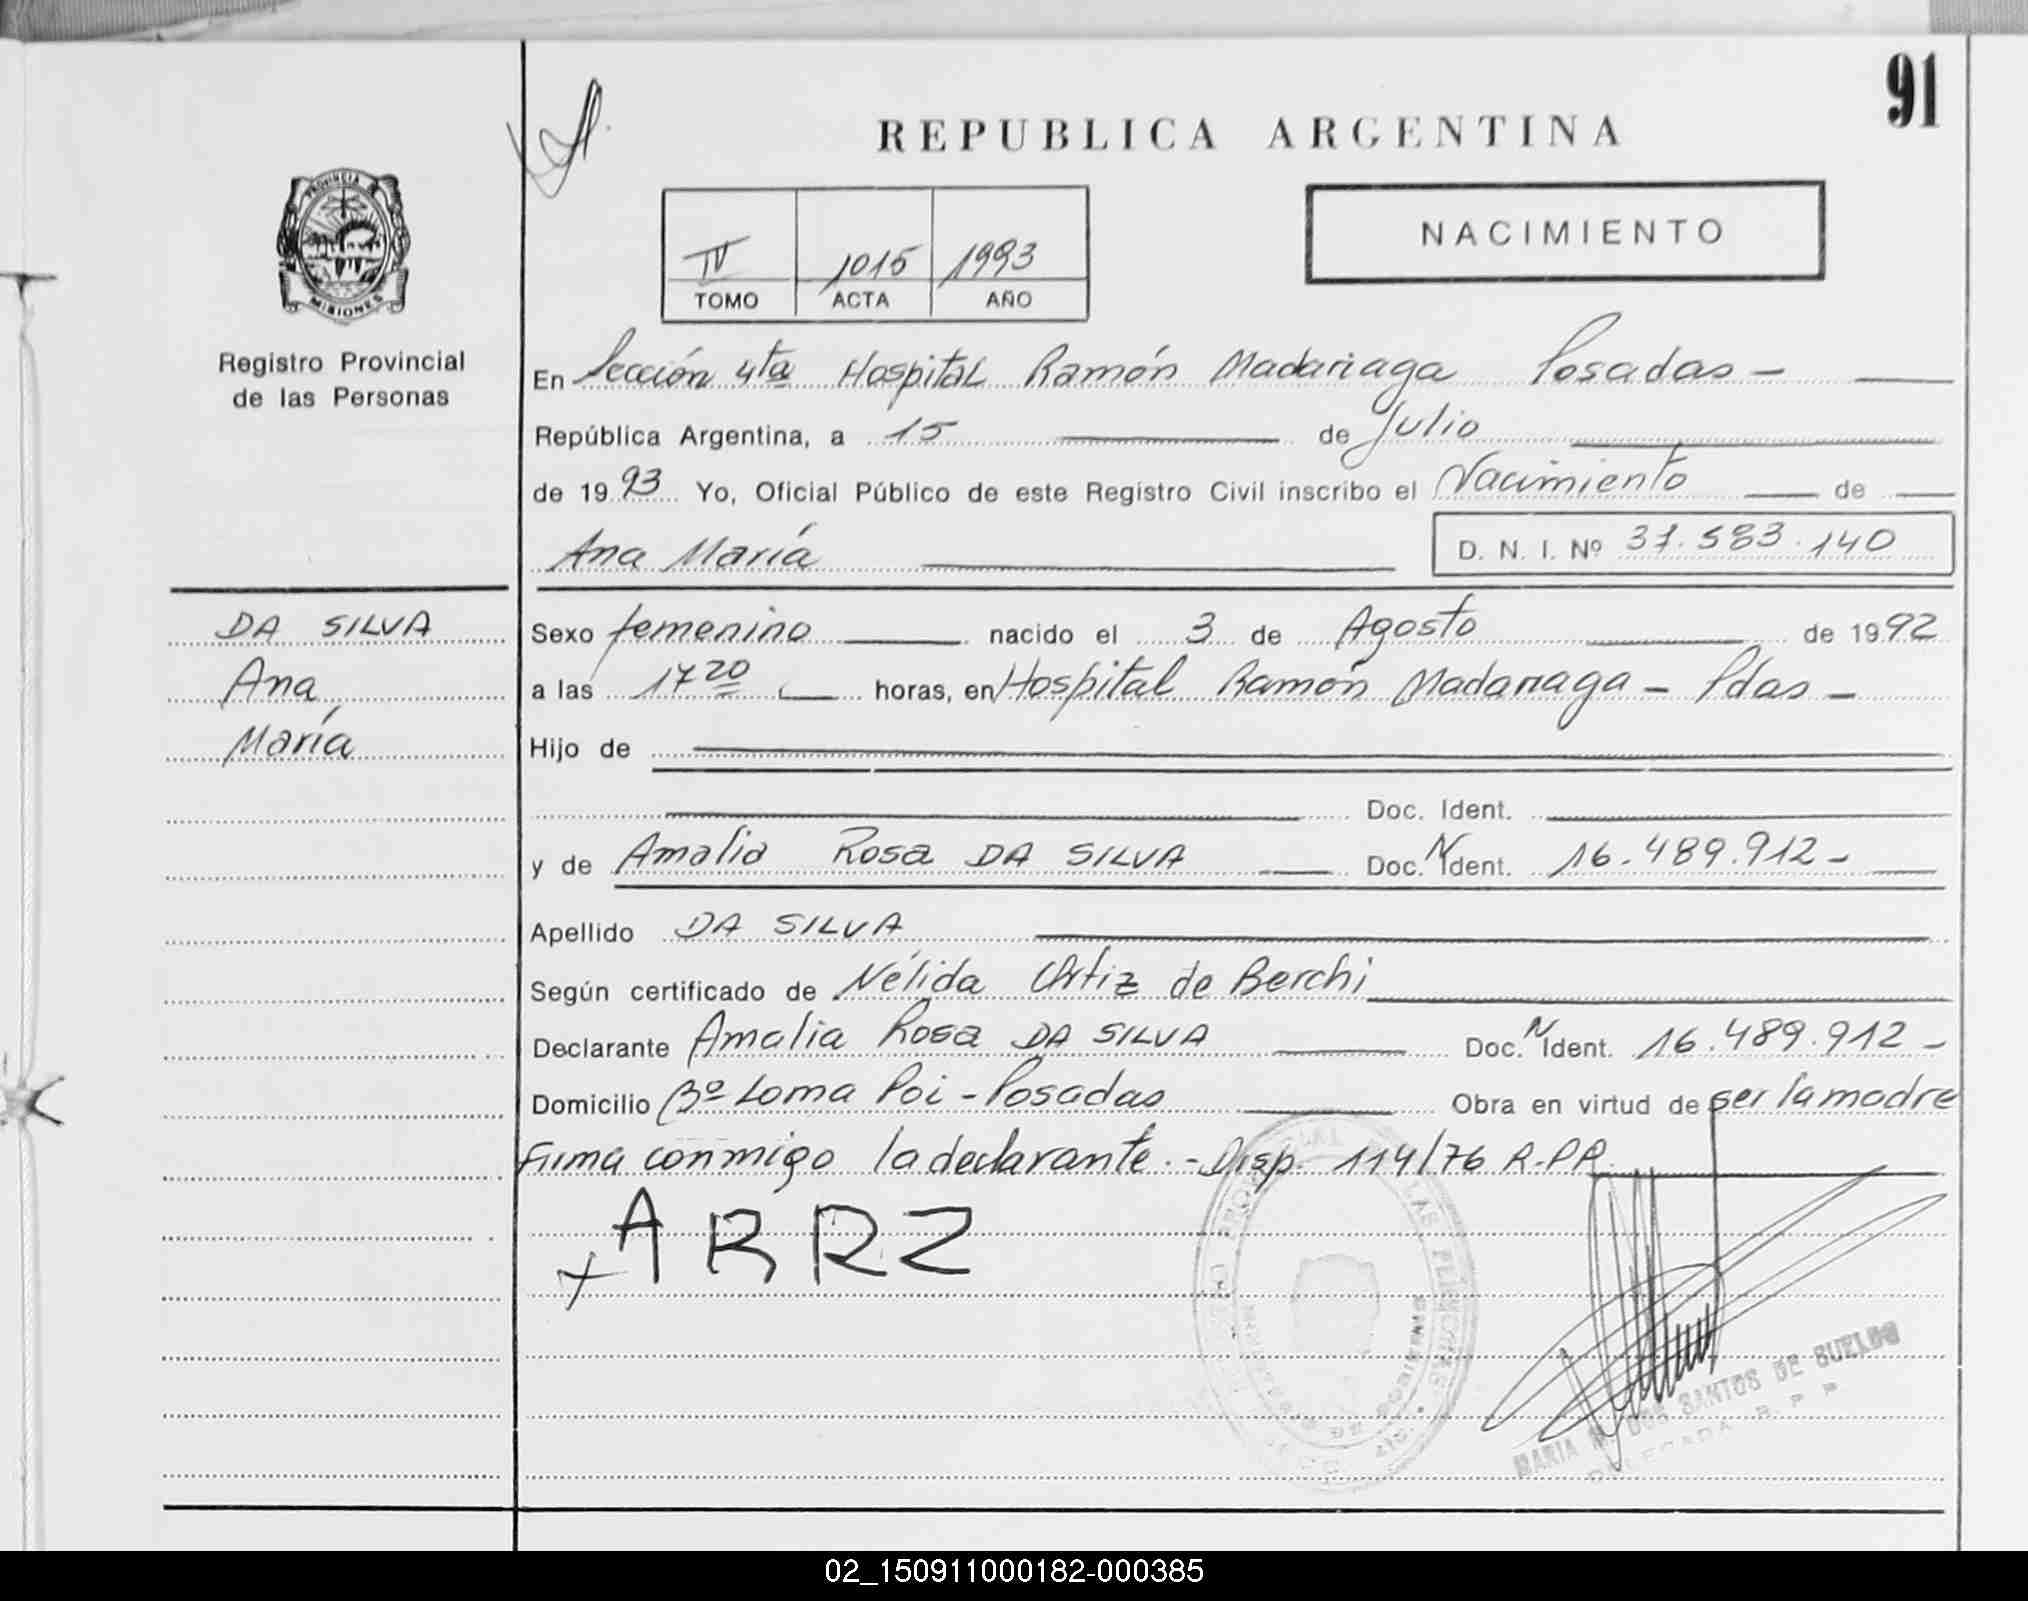 91
REPUBLICA ARGENTINA
PROVINCIA DE
MISIONES
Registro Provincial
de las Personas
IV 1015 1993
TOMO ACTA AÑO
NACIMIENTO
En Sección 4ta Hospital Ramón Madariaga Posadas -
República Argentina, a 15 de Julio
de 1993 Yo, Oficial Público de este Registro Civil inscribo el Nacimiento de
Ana María D. N. I. Nº 37.583.140
DA SILVA
Ana
María
Sexo femenino nacido el 3 de Agosto de 1992
a las 17 20 horas, en Hospital Ramón Madariaga - Pdas -
Hijo de
Doc. Ident.
y de Amalia Rosa DA SILVA Doc. N Ident. 16.489.912 -
Apellido DA SILVA
Según certificado de Nélida Ortiz de Berchi
Declarante Amalia Rosa DA SILVA Doc. N Ident. 16.489.912 -
Domicilio Bº Loma Poi - Posadas Obra en virtud de ser la madre
Firma conmigo la declarante. - Disp. 114/76 R.P.P.
x A R R Z
MARIA DOS SANTOS DE BUENO
DELEGADA R. P. P.
02_150911000182-000385